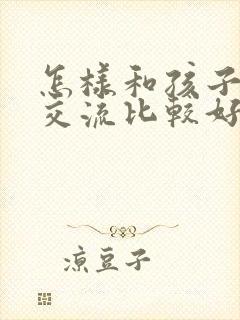 怎样和孩子
交流比较好
凉豆子